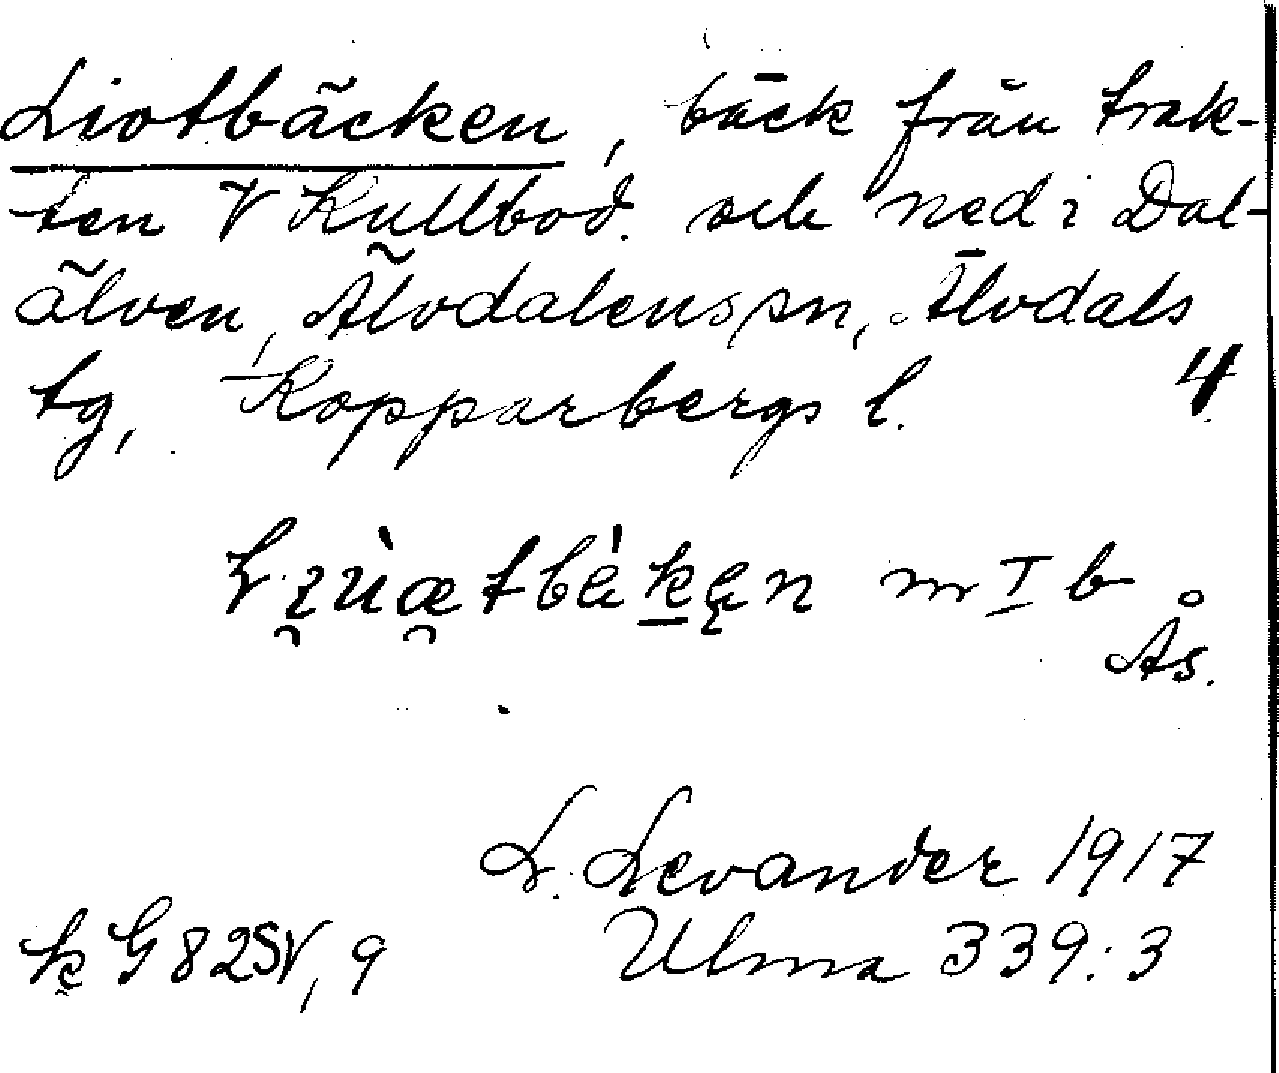 Liotbäcken, bäck från trak-
ten V Kullbod. och ned i Dal-
älven, Älvdalens sn, Älvdals
tg, Kopparbergs l. 4
m I b
Ås.
L. Levander 1917
k G 82SV, 9 Ulma 339:3